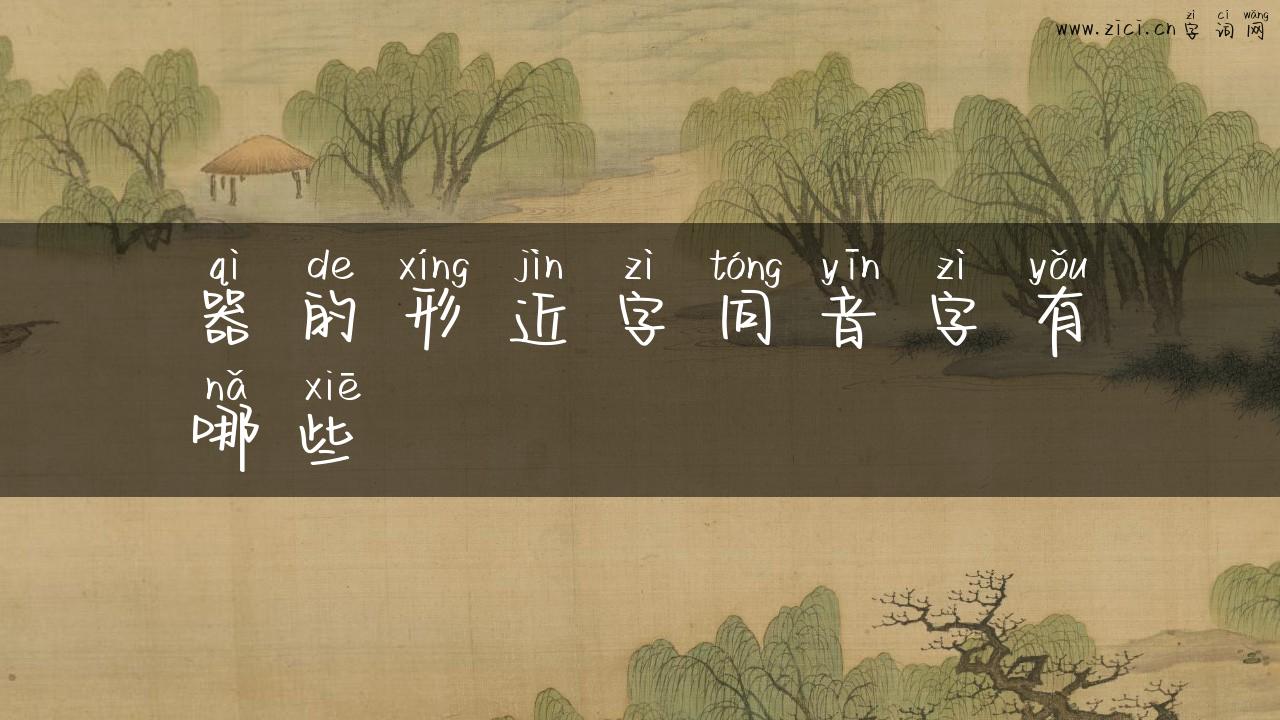 zì cí wǎng
www.zici.cn字词网
qì de xíng jìn zì tóng yīn zì yǒu
器的形近字同音字有
nǎ xiē
哪些